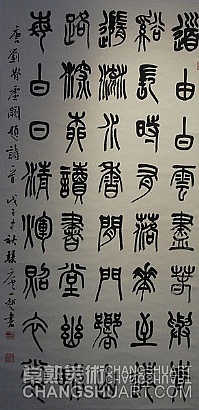 道由白雲盡春與青
谿長時有落花至遠
隨流水香閒門嚮山
路深柳讀書堂幽映
每白日清輝照衣裳
唐劉眘虛闕題詩一首戊子秋書
常熟美術
CHANGSHUART.COM